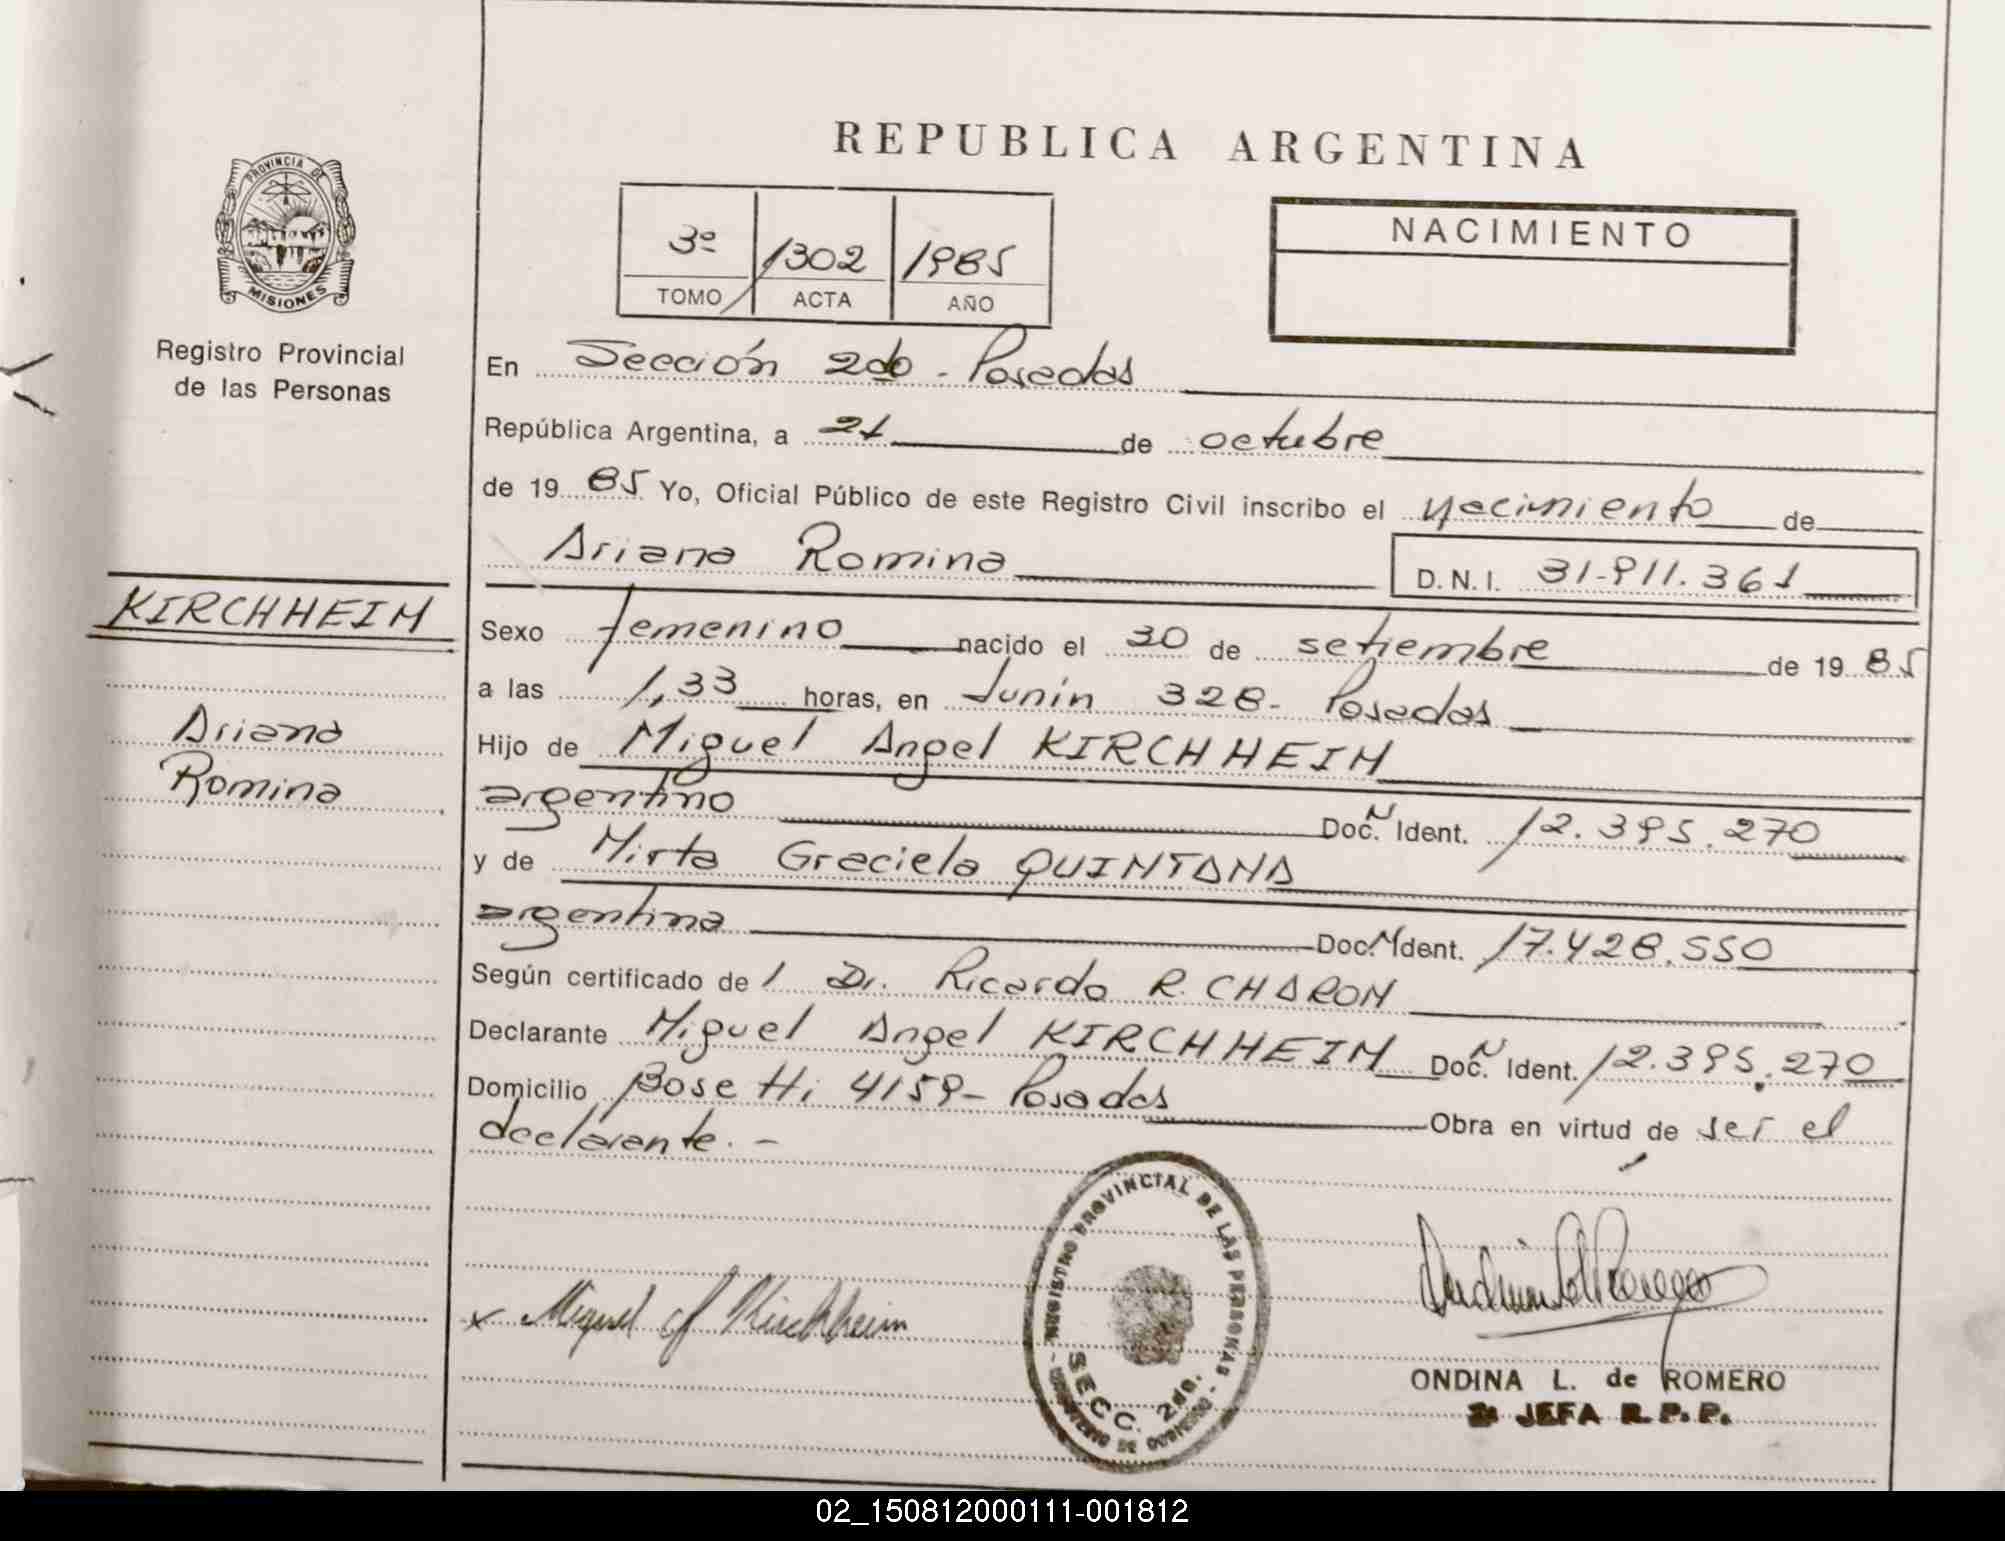 REPUBLICA ARGENTINA
PROVINCIA DE
MISIONES
Registro Provincial
de las Personas
3º 1302 1985
TOMO ACTA AÑO
NACIMIENTO
En Sección 2do - Posadas
República Argentina, a 21 de octubre
de 1985 Yo, Oficial Público de este Registro Civil inscribo el nacimiento de
Ariana Romina D.N.I. 31.911.361
KIRCHHEIM
Ariana
Romina
Sexo femenino nacido el 30 de setiembre de 1985
a las 1,33 horas, en Junín 328- Posadas
Hijo de Miguel Angel KIRCHHEIM
argentino Doc. N Ident. 12.395.270
y de Mirta Graciela QUINTANA
argentina Doc. N Ident. 17.428.550
Según certificado de l Dr. Ricardo R. CHARON
Declarante Miguel Angel KIRCHHEIM Doc. N Ident. 12.395.270
Domicilio Bosetti 4159- Posadas Obra en virtud de ser el
declarante. -
REGISTRO PROVINCIAL DE LAS PERSONAS
SECC. 2da.
MINISTERIO DE GOBIERNO
x Miguel A Kirchheim
ONDINA L. de ROMERO
2a JEFA R.P.P.
02_150812000111-001812